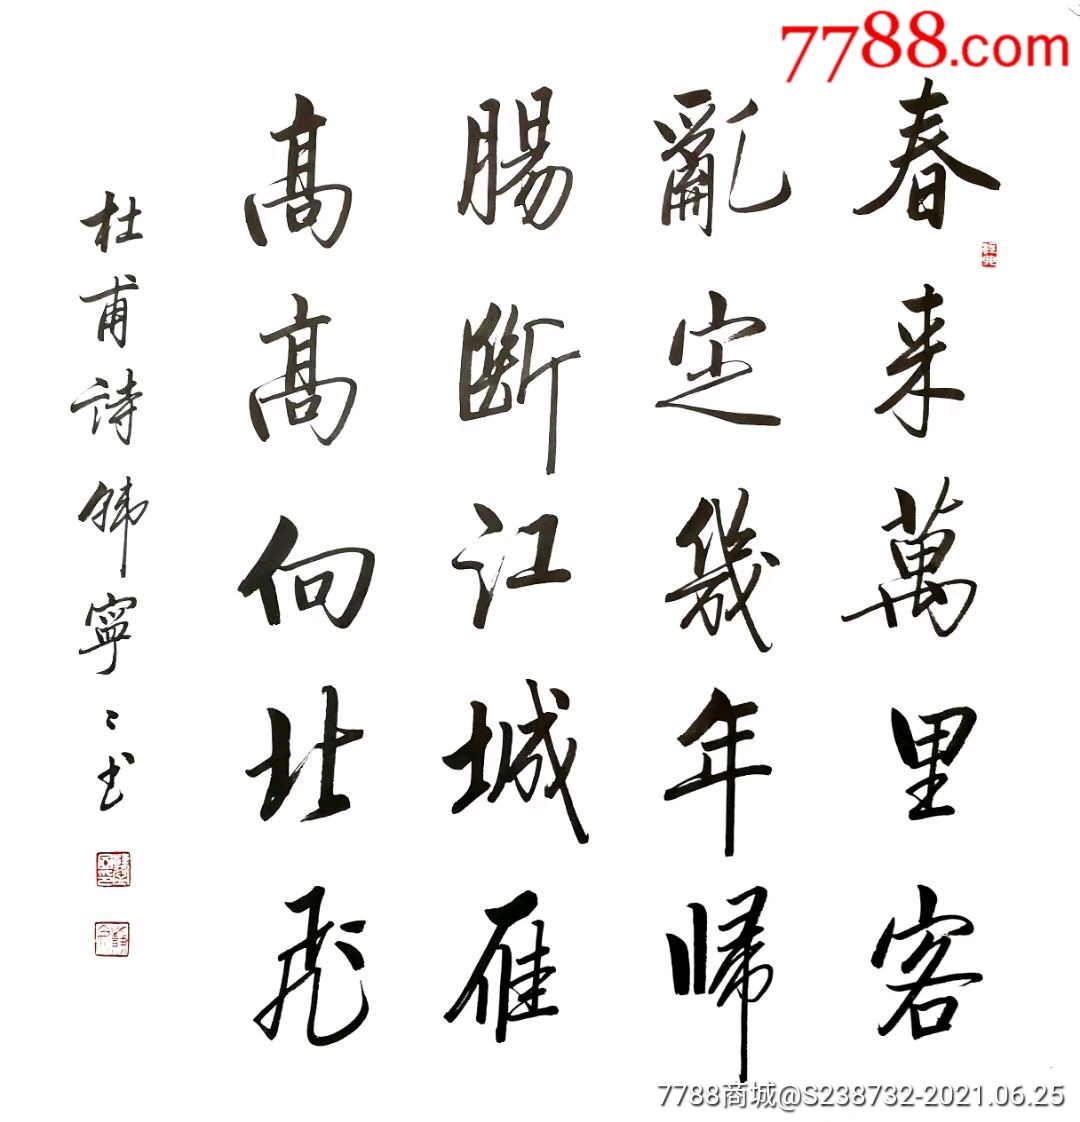 7788.com
春来萬里客
亂定幾年帰
腸斷江城雁
髙髙向北飛
杜甫诗韩寧〻书
7788商城@S238732-2021.06.25